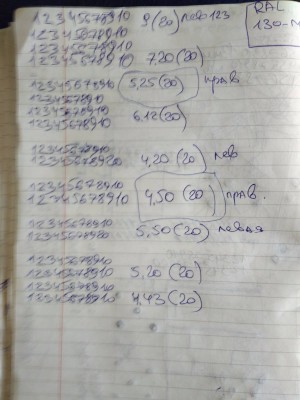 12345678910 9(20) лево 123
12345678910
12345678910
12345678910 7,20(20)
12345678910 5,25(20) прав
12345678910
12345678910 6,12(20)
12345678910
12345678910 4,20(20) лев
12345678910
12345678910 4,50(20) прав.
12345678910
12345678910 5,50(20) левая
12345678910
12345678910 5,20(20)
12345678910 4,43(20)
RAL
130-